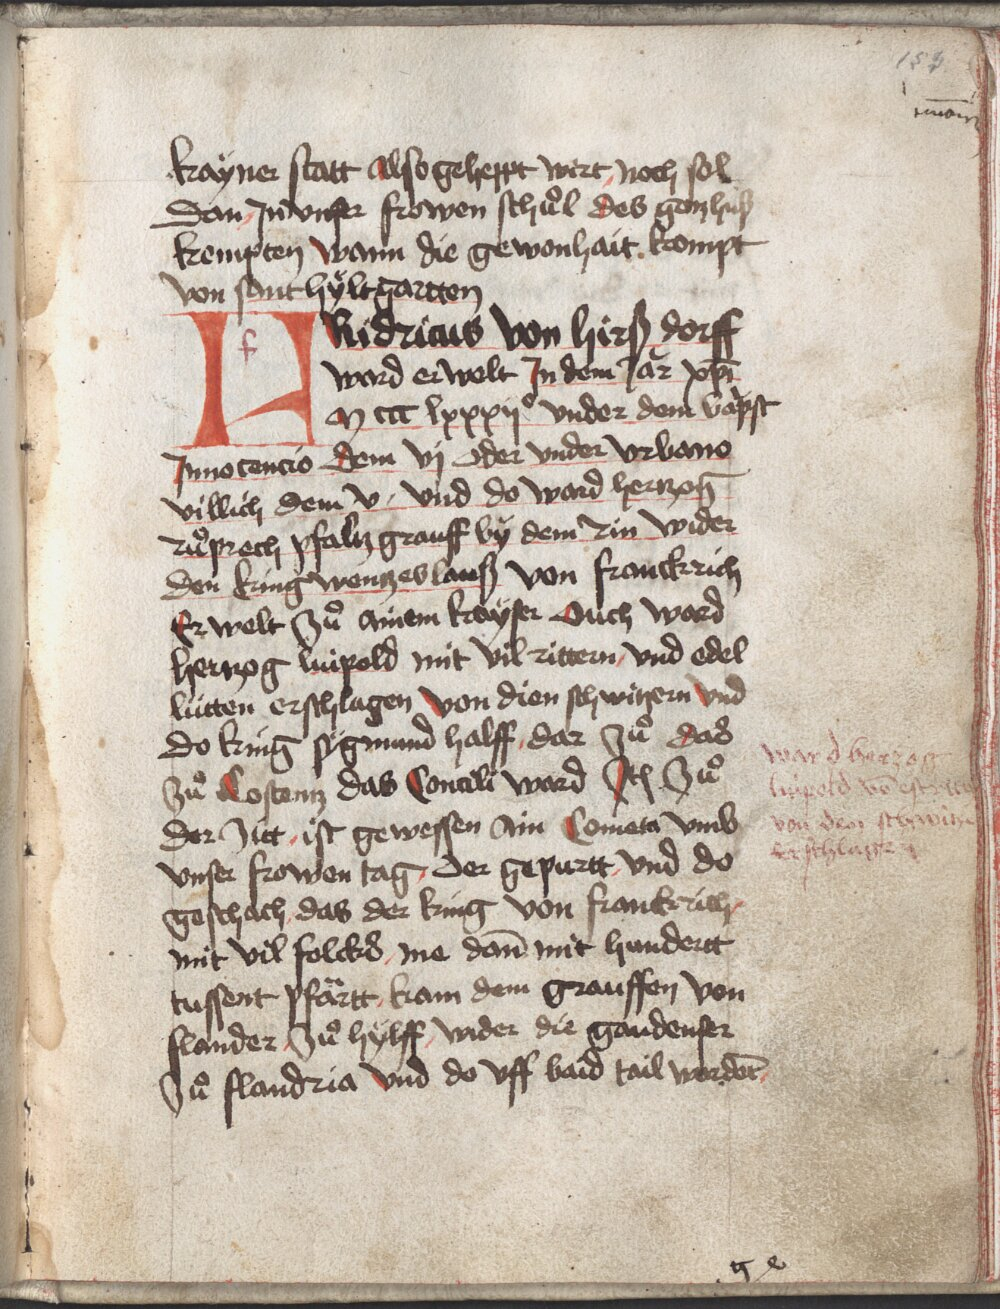 krayner statt also geheppt wirt noch sol
dan In unser frowen schůl des gotzhuß
kempten wann die gewonhait kompt
von sant hyltgartten
f
URidricus von hirß dorff
ward erwelt In dem Jar xpi
M ccc lxxxii° vnder dem bapst
Innocencio dem vj oder vnder vrbano
villich dem v. vnd do ward hertzog
růprech pfaltzgrauff by dem rin wider
den kung wentzeslauß von franckrich
Er welt zů ainem kayser Ouch ward
hertzog lupold mit vil rittern vnd edel
lütten erschlagen von dien schwitzern vnd
do kung sigmund halff dar zů das
zů Costentz das Concili ward Itē zů
der zitt ist gewessen ain Cometa vmb
vnser frowen tag der gepurtt vnd do
geschach das der kung von franckrich
mit vil folcks me dañ mit hundertt
tussent pfärtt kam dem grauffen von
flander zů hylff wider die gaudenser
zů flandria vnd do vff baid tail wordēt
ward herzog
lupold vō
von den schwitz
erschlagē